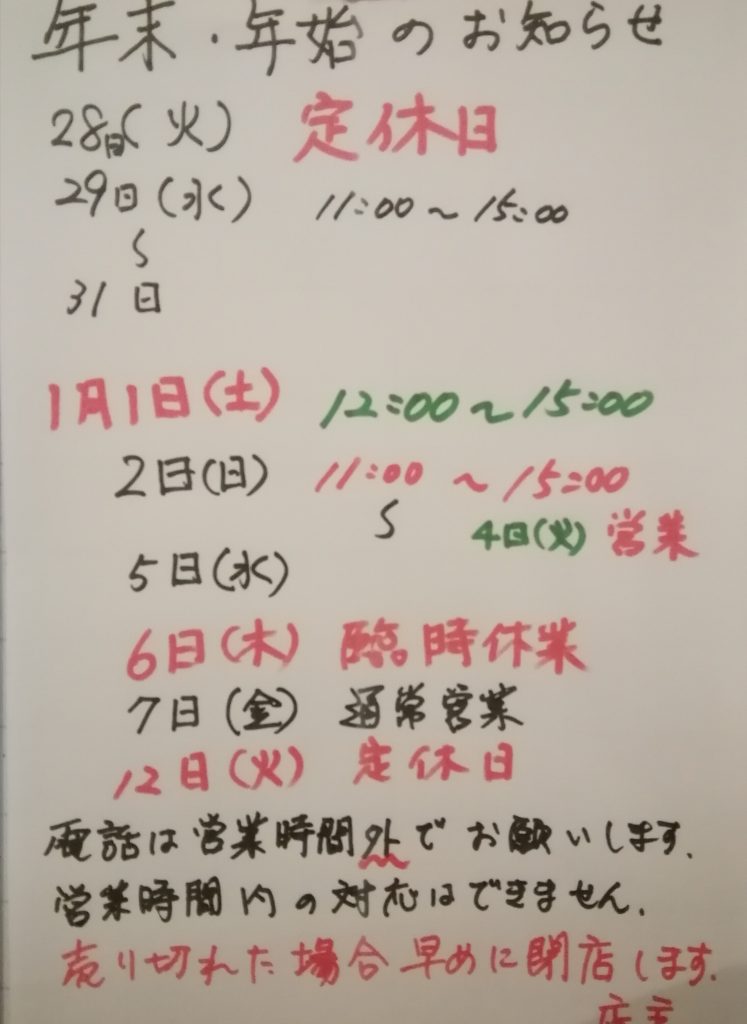 年末・年始のお知らせ
28日(火) 定休日
29日(水) 11:00～15:00
〜
31日
1月1日(土) 12:00～15:00
2日(日) 11:00～15:00
〜 4日(火) 営業
5日(水)
6日(木) 臨時休業
7日(金) 通常営業
12日(火) 定休日
電話は営業時間外でお願いします.
営業時間内の対応はできません.
売り切れた場合早めに閉店します.
店主